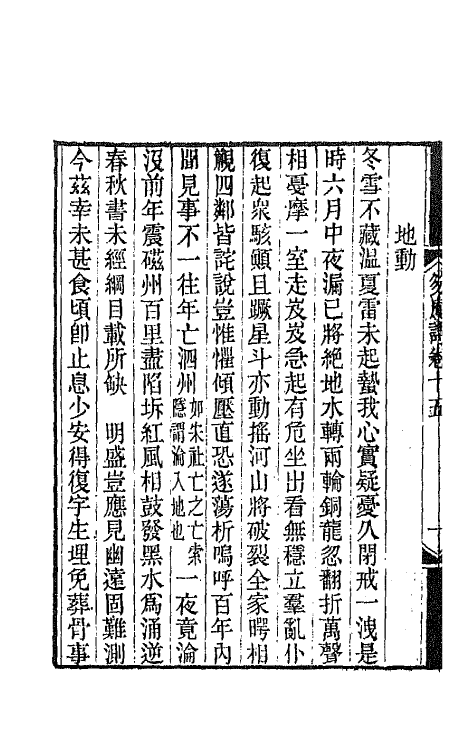 地動
冬雪不藏溫夏雷未起蟄我心實疑憂久閉戒一洩是
時六月中夜漏已將絕地水轉兩輪銅龍忽翻折萬聲
相戞摩一室走岌岌急起有危坐出看無穩立羣亂仆
復起衆駭顚且蹶星斗亦動搖河山將破裂全家㗁相
覩四鄰皆詫說豈惟懼傾壓直恐遂蕩析嗚呼百年內
聞見事不一往年亡泗州如宋社亡之亡索隱謂淪入地也一夜竟淪
沒前年震磁州百里盡陷坼紅風相鼓發黑水爲涌逆
春秋書未經綱目載所缺 明盛豈應見幽遠固難測
今茲幸未甚食頃卽止息少安得復字生理免葬骨事
卷十五